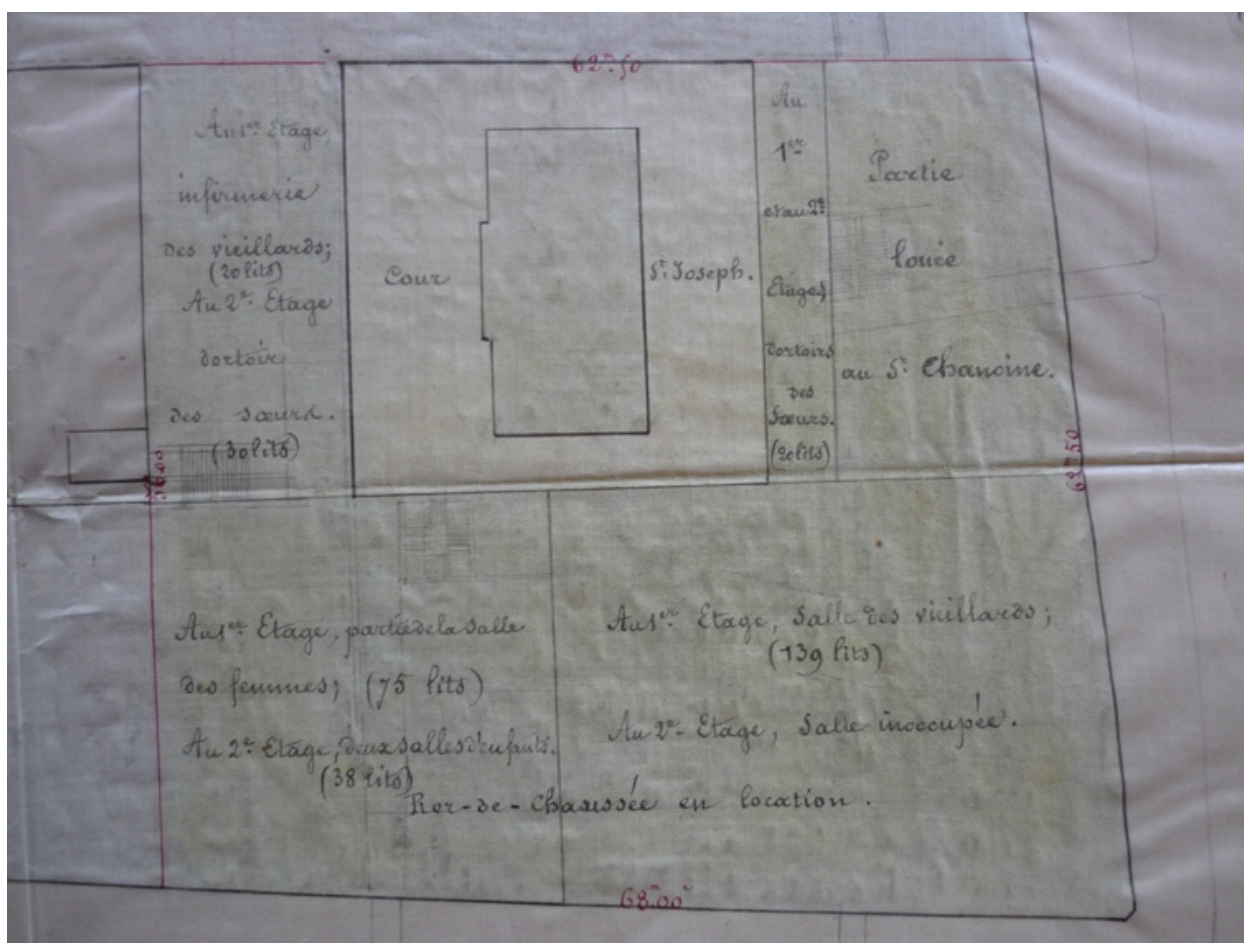 62m50
Au 1er Etage,
infirmerie
des vieillards;
(20 lits)
Au 2e Etage
dortoir
des sœurs.
(30 lits)
Cour
St Joseph.
Au
1er
et au 2e
Etages,
dortoirs
des
Sœurs.
(20 lits)
Partie
louée
au Sr Chanoine.
62m50
Au 1er Etage, partie de la Salle
des femmes; (75 lits)
Au 2e Etage, deux salles d'enfants.
(38 lits)
Au 1er Etage, Salle des vieillards;
(139 lits)
Au 2e Etage, Salle inoccupée.
Rez-de-Chaussée en location.
68m00c